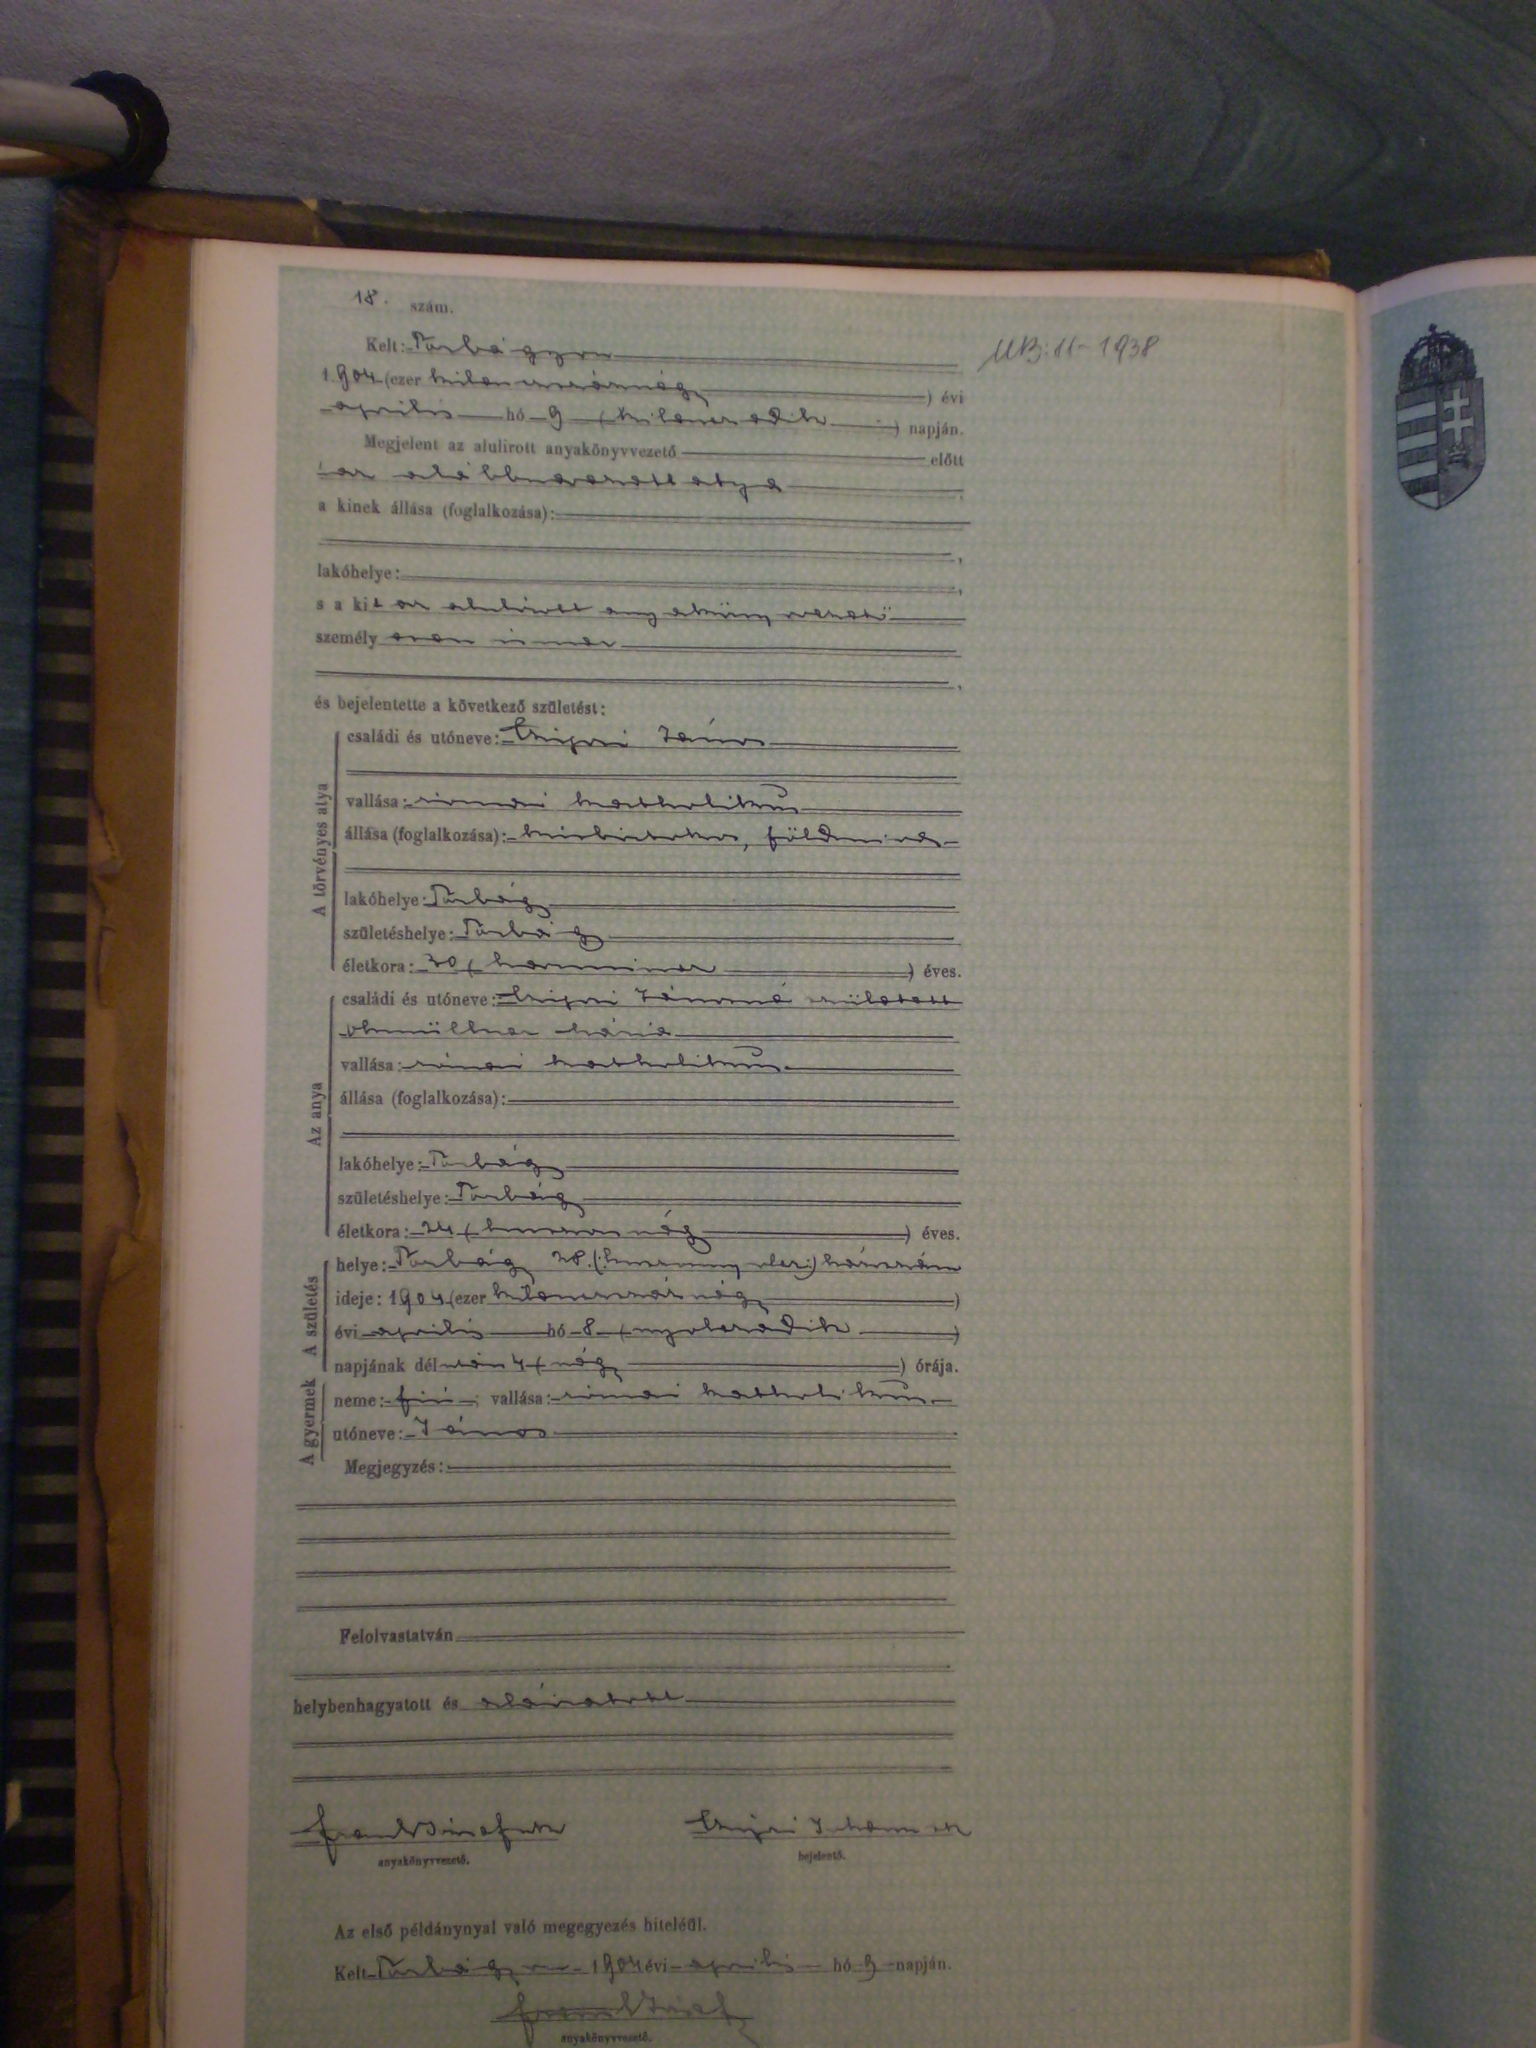 18. szám.
Kelt: Torbágyon
MB: 11-1938
1904 (ezer kilenczszáznégy) évi
április hó 9 (kilenczedik) napján.
Megjelent az alulirott anyakönyvvezető előtt
az alább nevezett atya
a kinek állása (foglalkozása):
lakóhelye:
s a kit az alulírott anyakönyvvezető
személyesen ismer
és bejelentette a következő születést:
A törvényes atya
családi és utóneve: János
vallása: római katholikus
állása (foglalkozása): kisbirtokos, földmíves
lakóhelye: Torbágy
születéshelye: Torbágy
életkora: 30 (harmincz) éves.
Az anya
családi és utóneve: Jánosné született
Mária
vallása: római katholikus
állása (foglalkozása):
lakóhelye: Torbágy
születéshelye: Torbágy
életkora: 24 (huszonnégy) éves.
A születés
helye: Torbágy 28. (:huszonnyolcz:) házszám
ideje: 1904 (ezer kilenczszáznégy)
évi április hó 8 (nyolczadik)
napjának délután 4 (négy) órája.
A gyermek
neme: fiú; vallása: római katholikus
utóneve: János
Megjegyzés:
Felolvastatván
helybenhagyatott és aláiratott
anyakönyvvezető. bejelentő.
Az első példánynyal való megegyezés hiteléűl.
Kelt Torbágyon 1904 évi április hó 9 napján.
anyakönyvvezető.